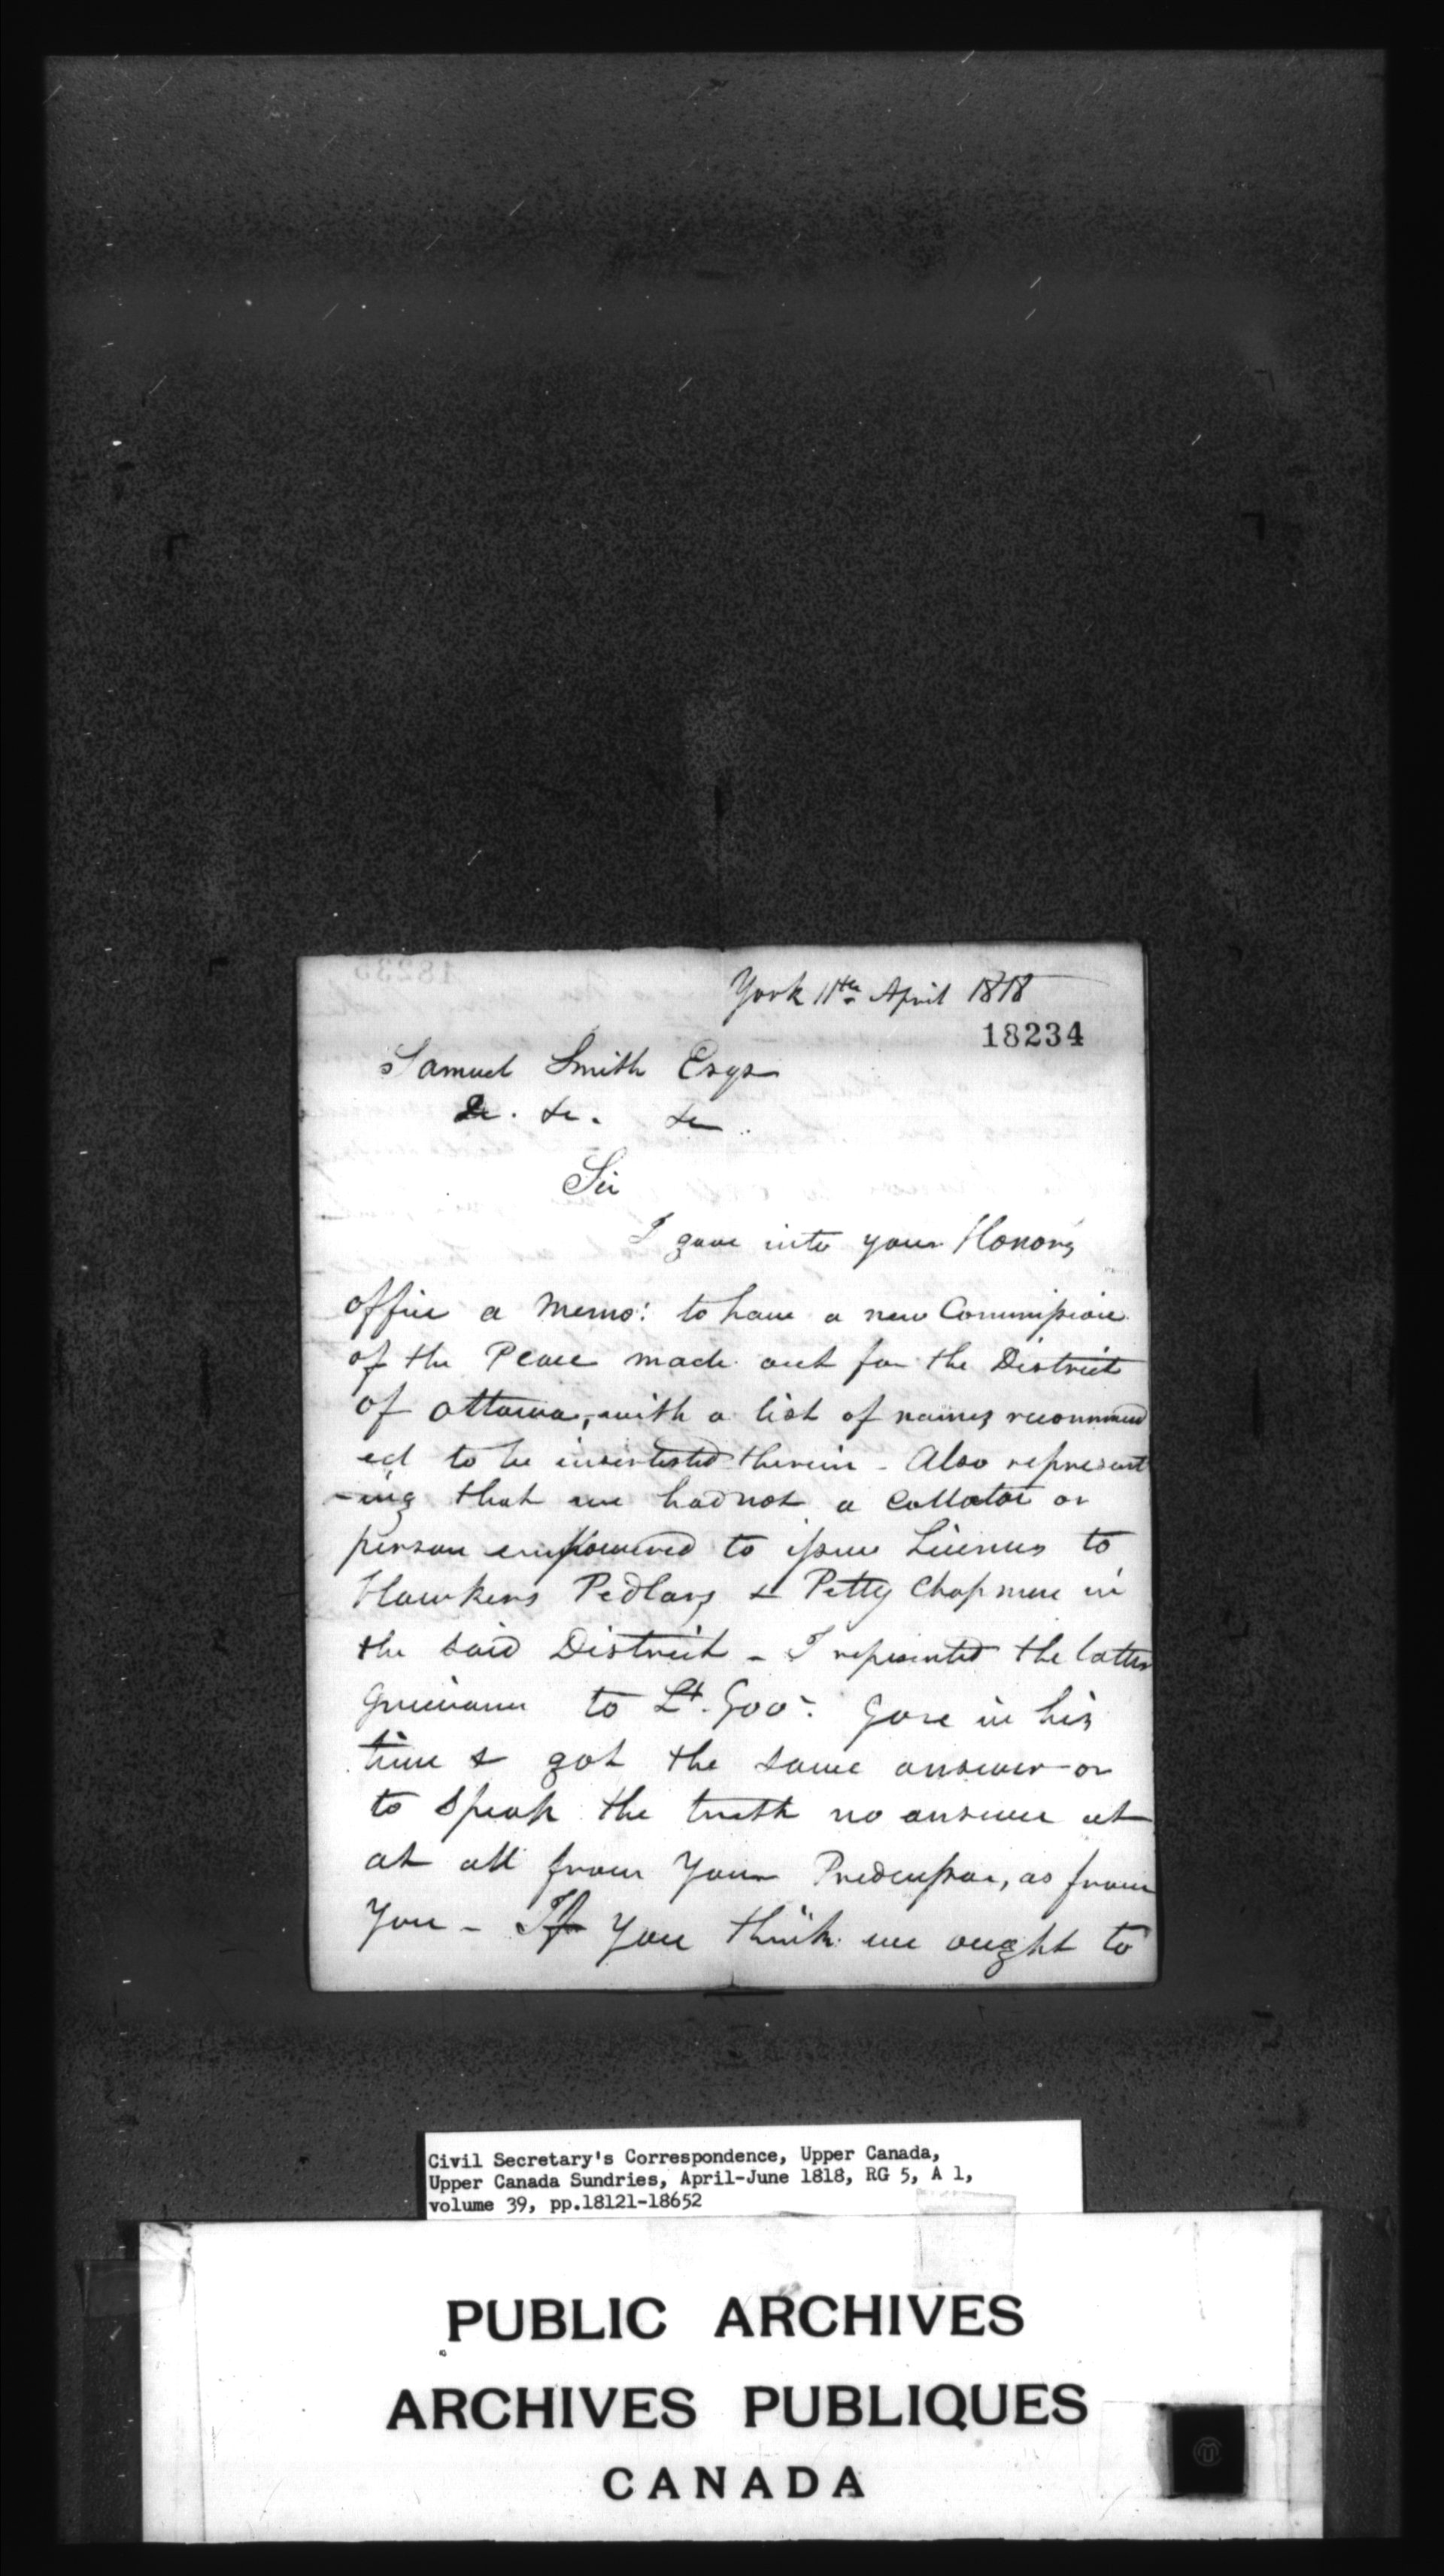 York 11th April 1818
18234
Samuel Smith Esqr
&c. &c. &c.
Sir
I gave into your Honors
office a Memo: to have a new Commission
of the Peace made out for the District
of Ottawa, with a list of names recommend
ed to be insertested therein - Also represent
-ing that we had not a Collector or
person empowered to issue Licenses to
Hawkers Pedlars & Petty Chapmen in
the said District - I represented the latter
Grievance to Lt. Govr. Gore in his
time & got the same answer or
to speak the truth no answer at
at all from Your Predecessor, as from
You - If You think we ought to
Civil Secretary's Correspondence, Upper Canada,
Upper Canada Sundries, April-June 1818, RG 5, A 1,
volume 39, pp.18121-18652
PUBLIC ARCHIVES
ARCHIVES PUBLIQUES
CANADA